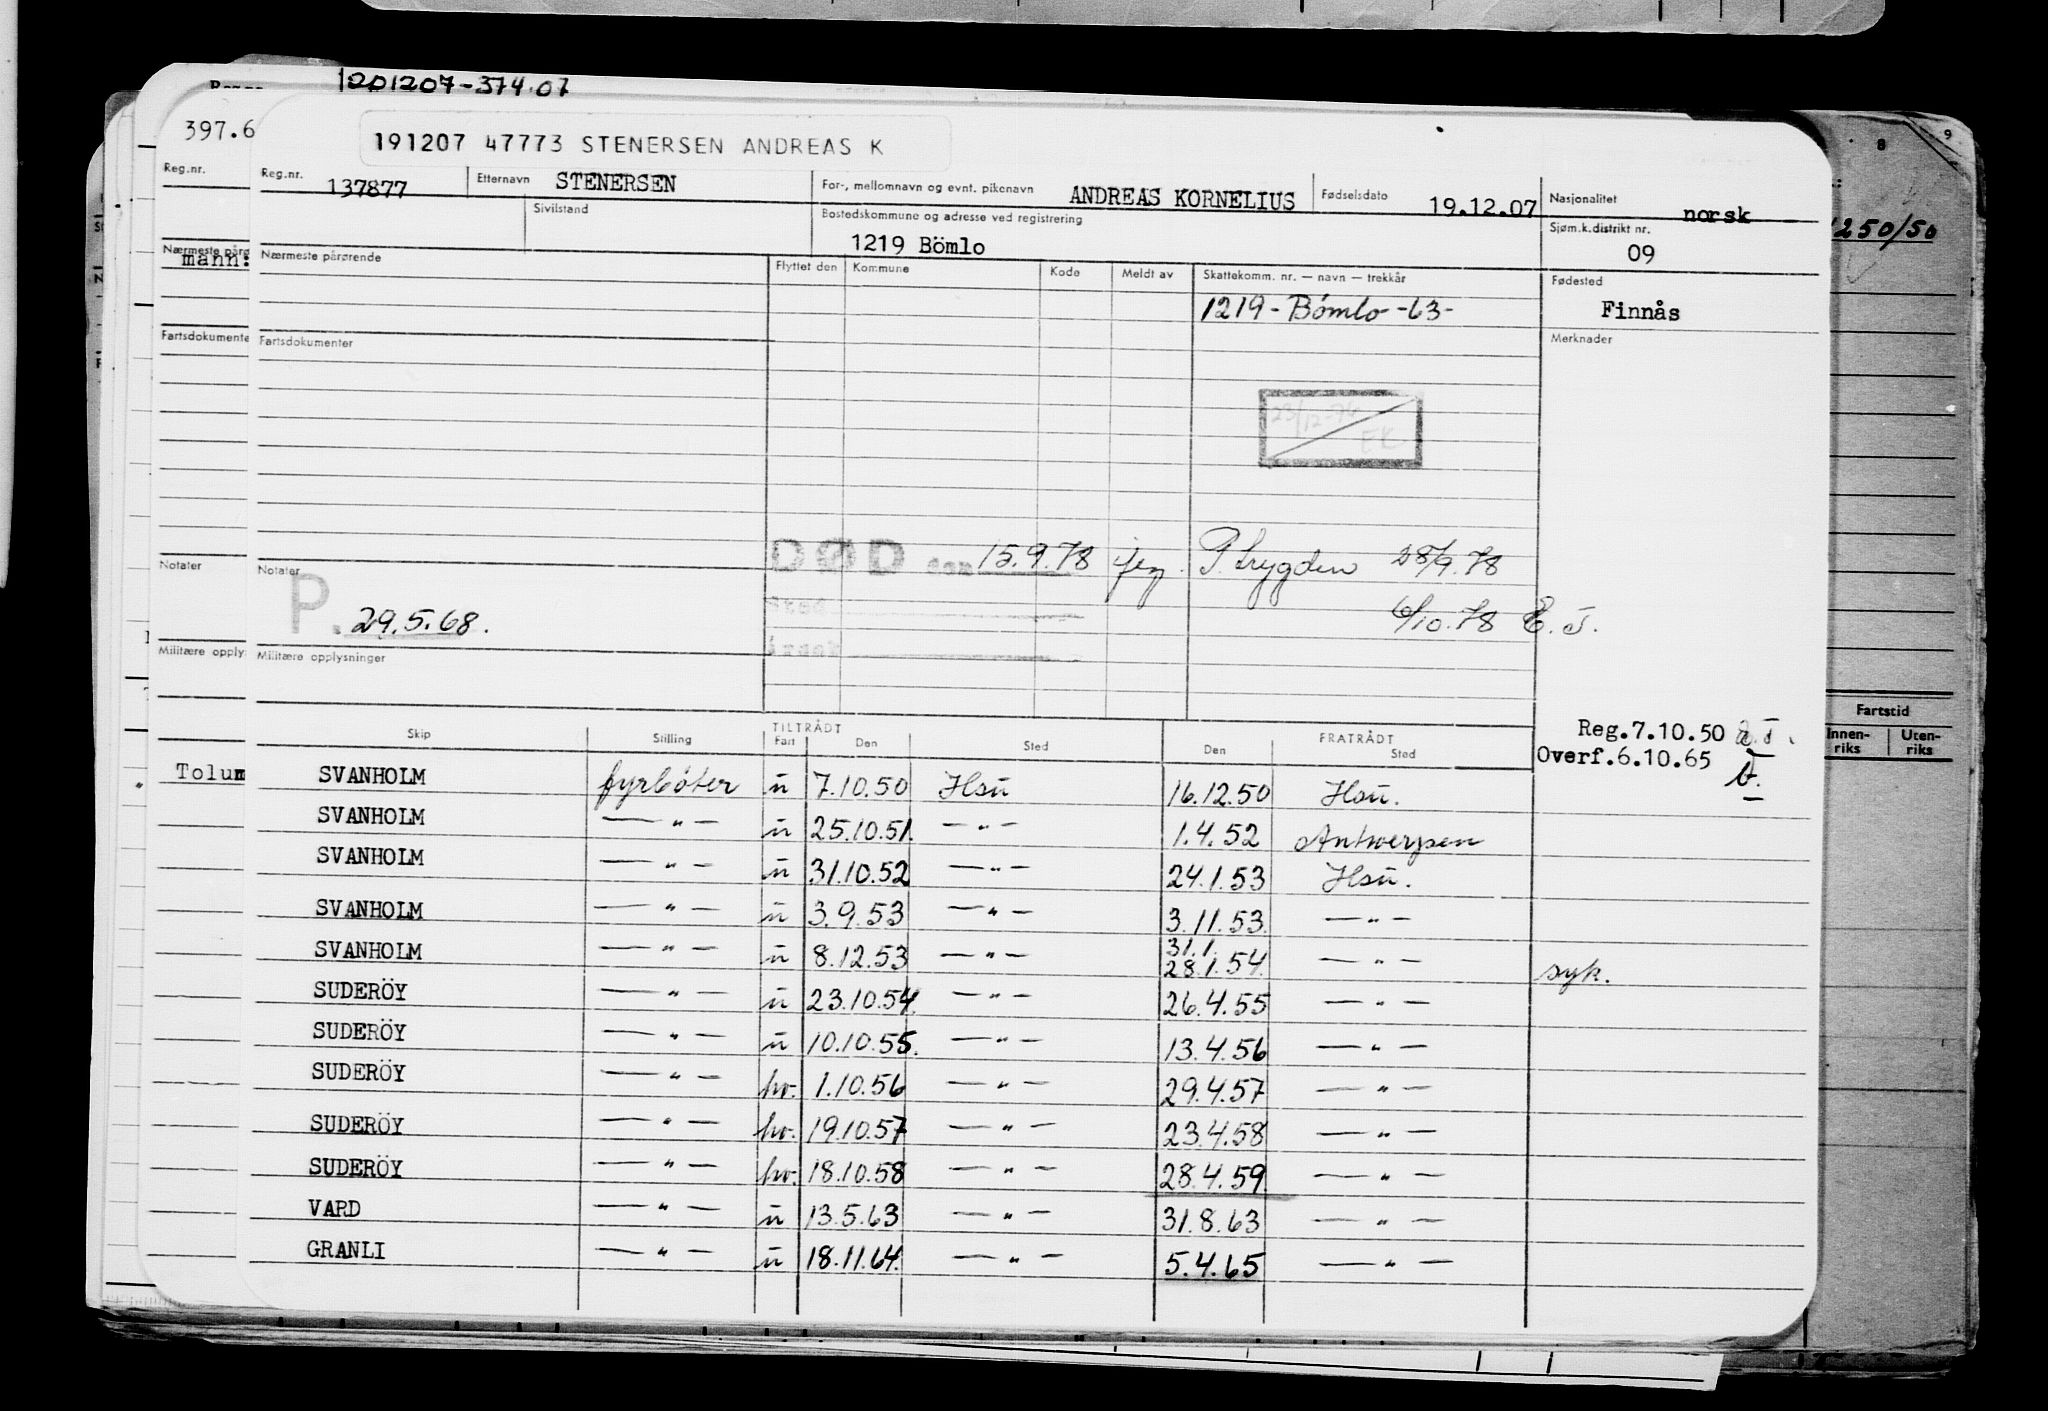 201207-374.07
397.6
191207 47773 STENERSEN ANDREAS K
Reg.nr.
Reg.nr. 137877 Etternavn STENERSEN For-, mellomnavn og evnt. pikenavn ANDREAS KORNELIUS Fødselsdato 19.12.07 Nasjonalitet norsk
Sivilstand Bostedskommune og adresse ved registrering 1219 Bömlo Sjøm.k.distrikt nr. 09
250/50
Nærmeste pårø
mann:
Nærmeste pårørende Flyttet den Kommune Kode Meldt av Skattekomm. nr. — navn — trekkår Fødested
1219 - Bömlo -63- Finnås
Fartsdokumente Fartsdokumenter Merknader
23/12-76
EK
DØD den 15.9.78 P. Trygden 28/9.78
Notater Notater
sted
P. 29.5.68. 6/10.78 E. J.
årsak
Militære opply Militære opplysninger
Reg.7.10.50
Overf.6.10.65
Fartstid
Innen-riks Uten-riks
TILTRÅDT FRATRÅDT
Skip Stilling Fart Den Sted Den Sted
Tolum
SVANHOLM fyrbøter u 7.10.50 Hsu 16.12.50 Hsu.
SVANHOLM — " — u 25.10.51. — " — 1.4.52 Antwerpen
SVANHOLM — " — u 31.10.52 — " — 24.1.53 Hsu.
SVANHOLM — " — u 3.9.53 — " — 3.11.53. — " —
SVANHOLM — " — u 8.12.53 — " — 31.1. 28.1.54. — " — syk.
SUDERÖY — " — u 23.10.54. — " — 26.4.55 — " —
SUDERÖY — " — u 10.10.55. — " — 13.4.56 — " —
SUDERÖY — " — hv. 1.10.56 — " — 29.4.57 — " —
SUDERÖY — " — hv. 19.10.57 — " — 23.4.58 — " —
SUDERÖY — " — hv. 18.10.58 — " — 28.4.59. — " —
VARD — " — u 13.5.63 — " — 31.8.63 — " —
GRANLI — " — u 18.11.64. — " — 5.4.65 — " —